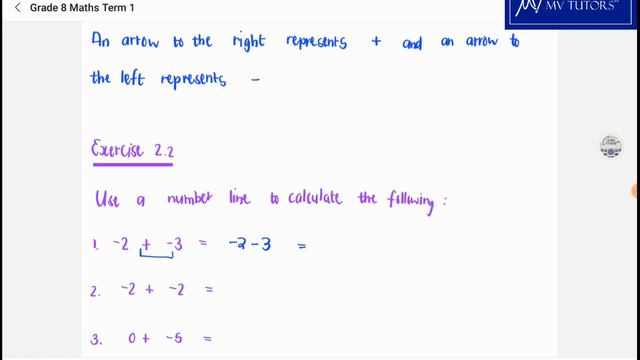 Grade 8 Maths Term 1
MV TUTORS
An arrow to the right represents + and an arrow to
the left represents -
Exercise 2.2
Use a number line to calculate the following :
1. -2 + -3 = -2 - 3 =
2. -2 + -2 =
3. 0 + -5 =